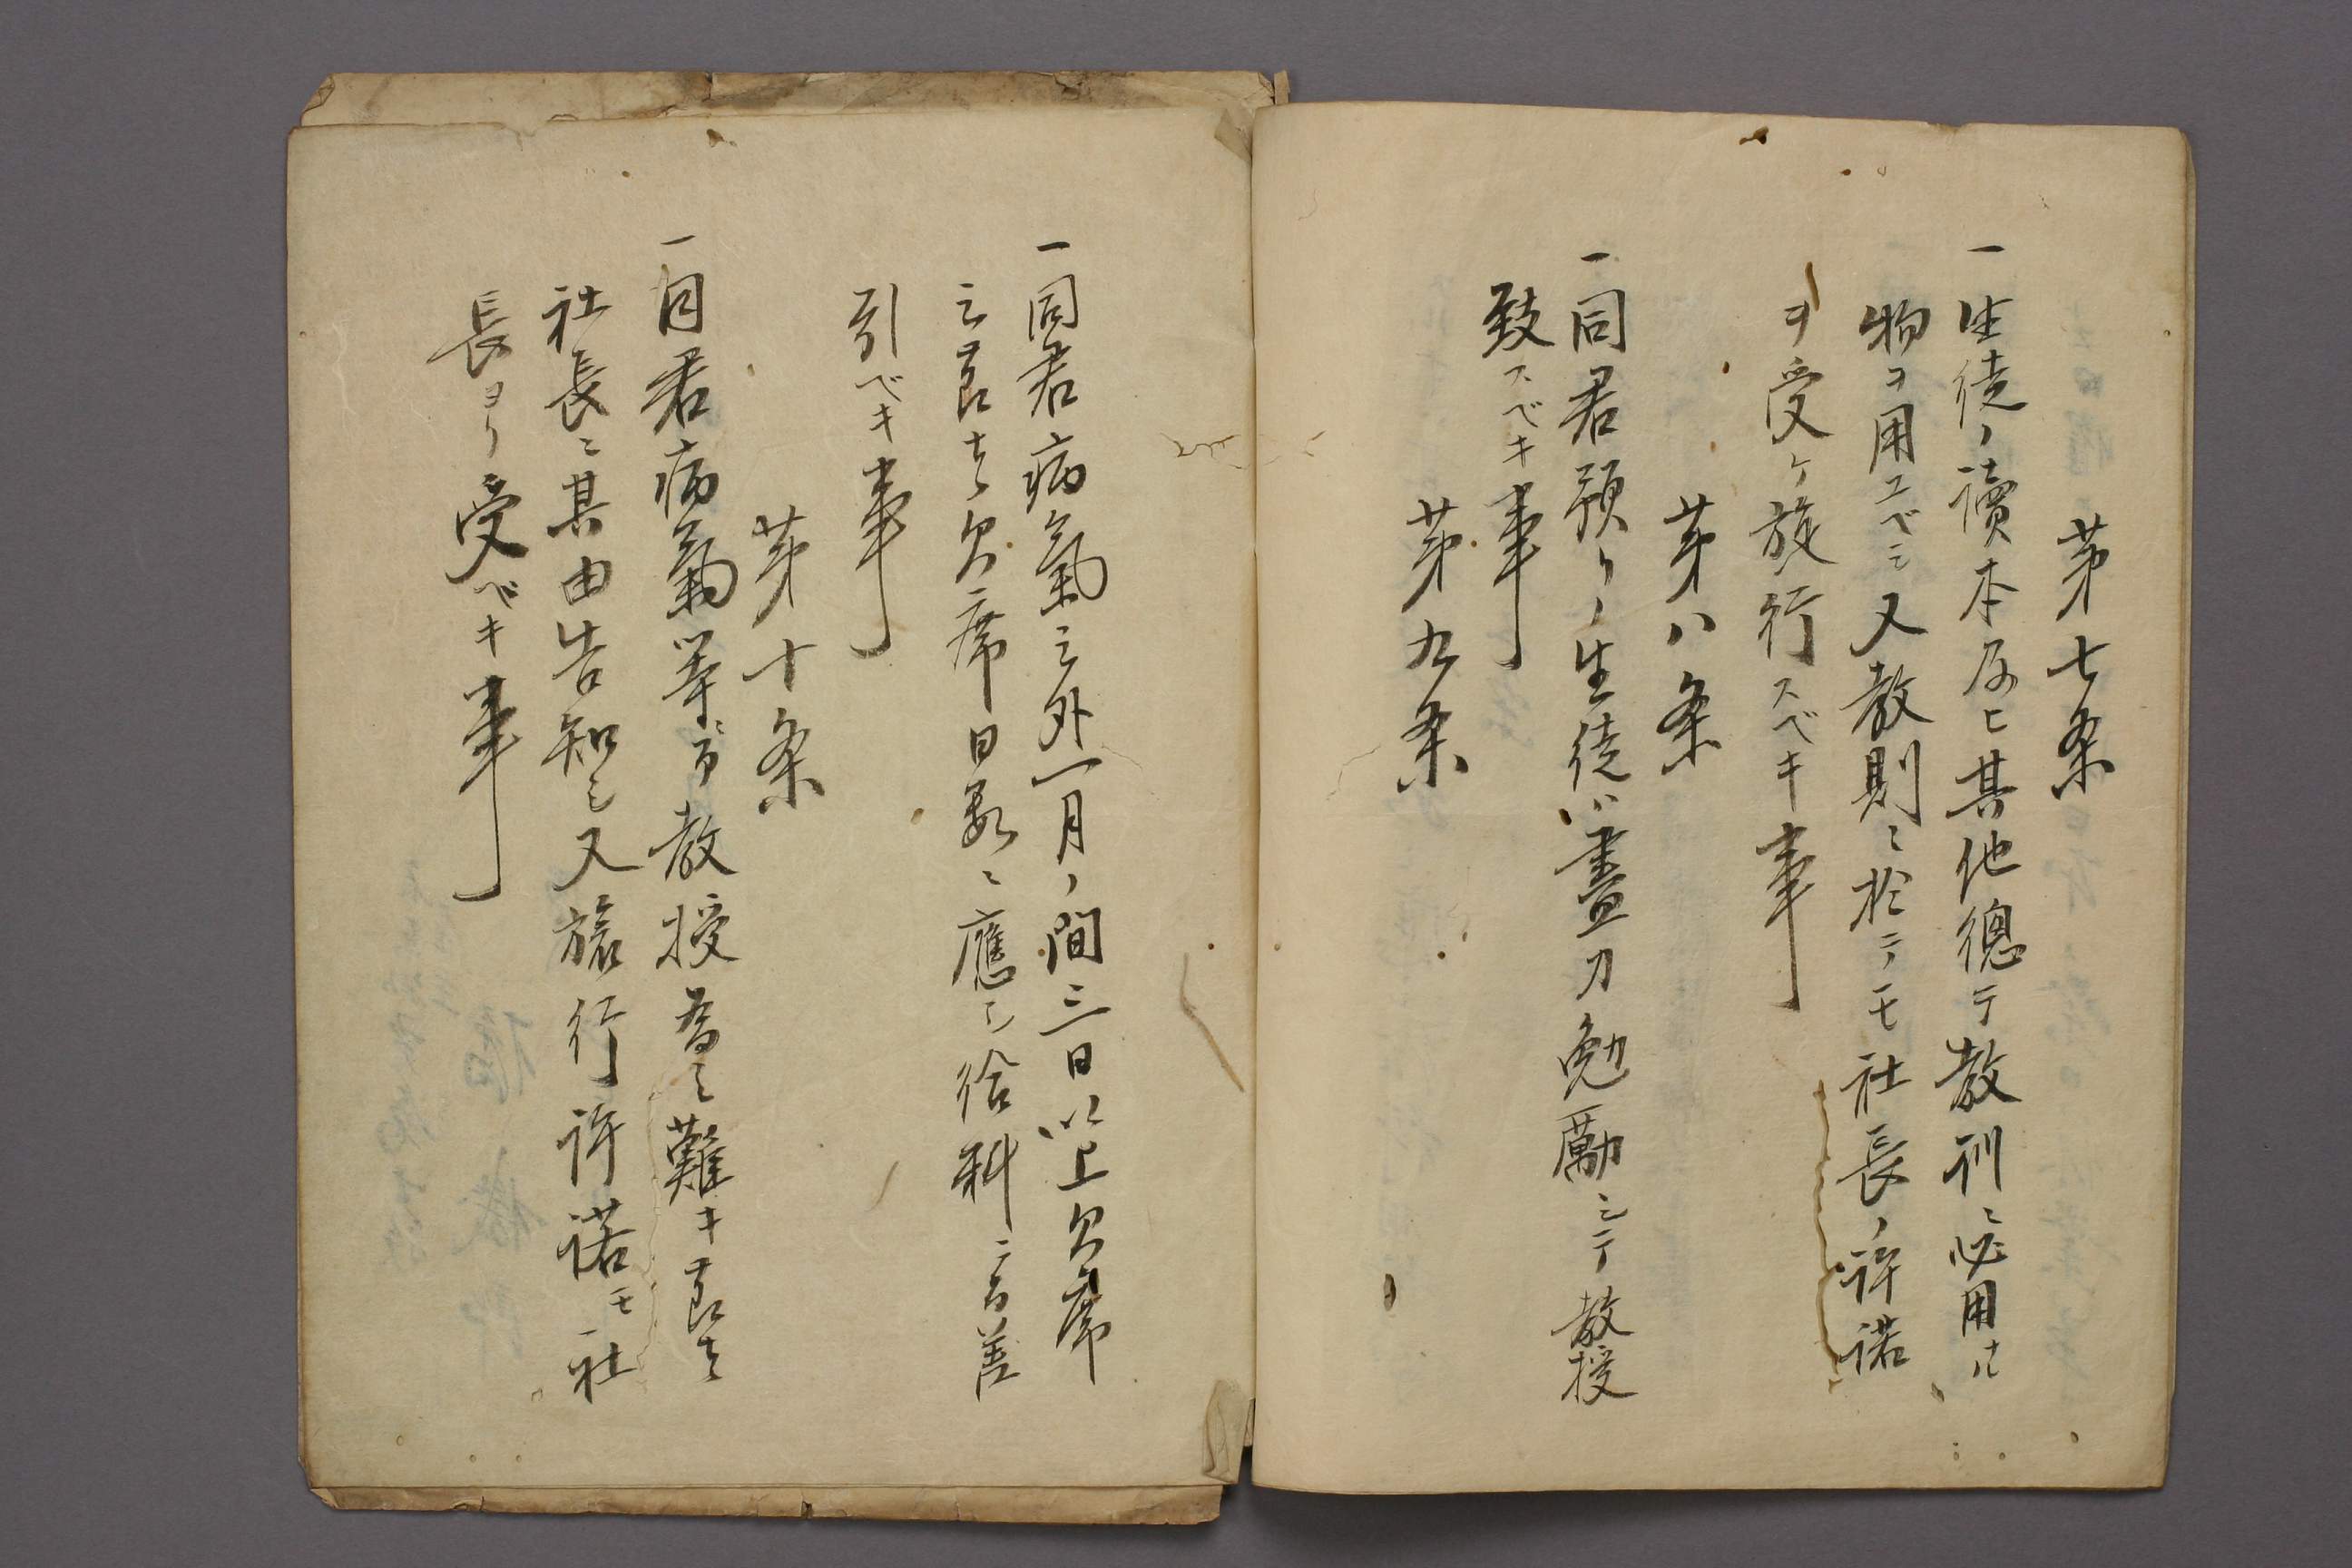 第七条
一生徒ノ讀本及ヒ其他總テ教訓ニ必用ナル
物ヲ用ユベシ又教則ニ於テモ社長ノ許諾
ヲ受ケ施行スベキ事
第八条
一同君預リノ生徒ハ盡力勉励シテ教授
致スベキ事
第九条
一同君病氣之外一月ノ間三日以上欠席
之節ハ欠席日数ニ應シ給料ニ而差
引ベキ事
第十条
一同君病氣等ニ而教授為シ難キ節ハ
社長ニ其由告知シ又旅行許諾モ社
長ヨリ受ベキ事